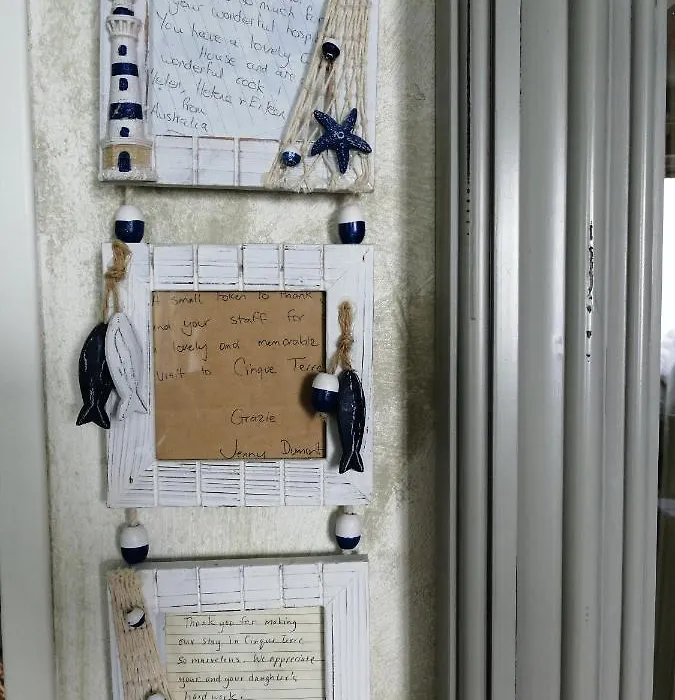 so much for
your wonderful hosp
You have a lovely
House and are
wonderful cook !
Helen, Helena & Eileen
from
Australia
A small token to thank
and your staff for
a lovely and memorable
visit to Cinque Terre
Grazie
Jenny Dumont
Thank you for making
our stay in Cinque Terre
so marvelous. We appreciate
your and your daughter's
hard work.